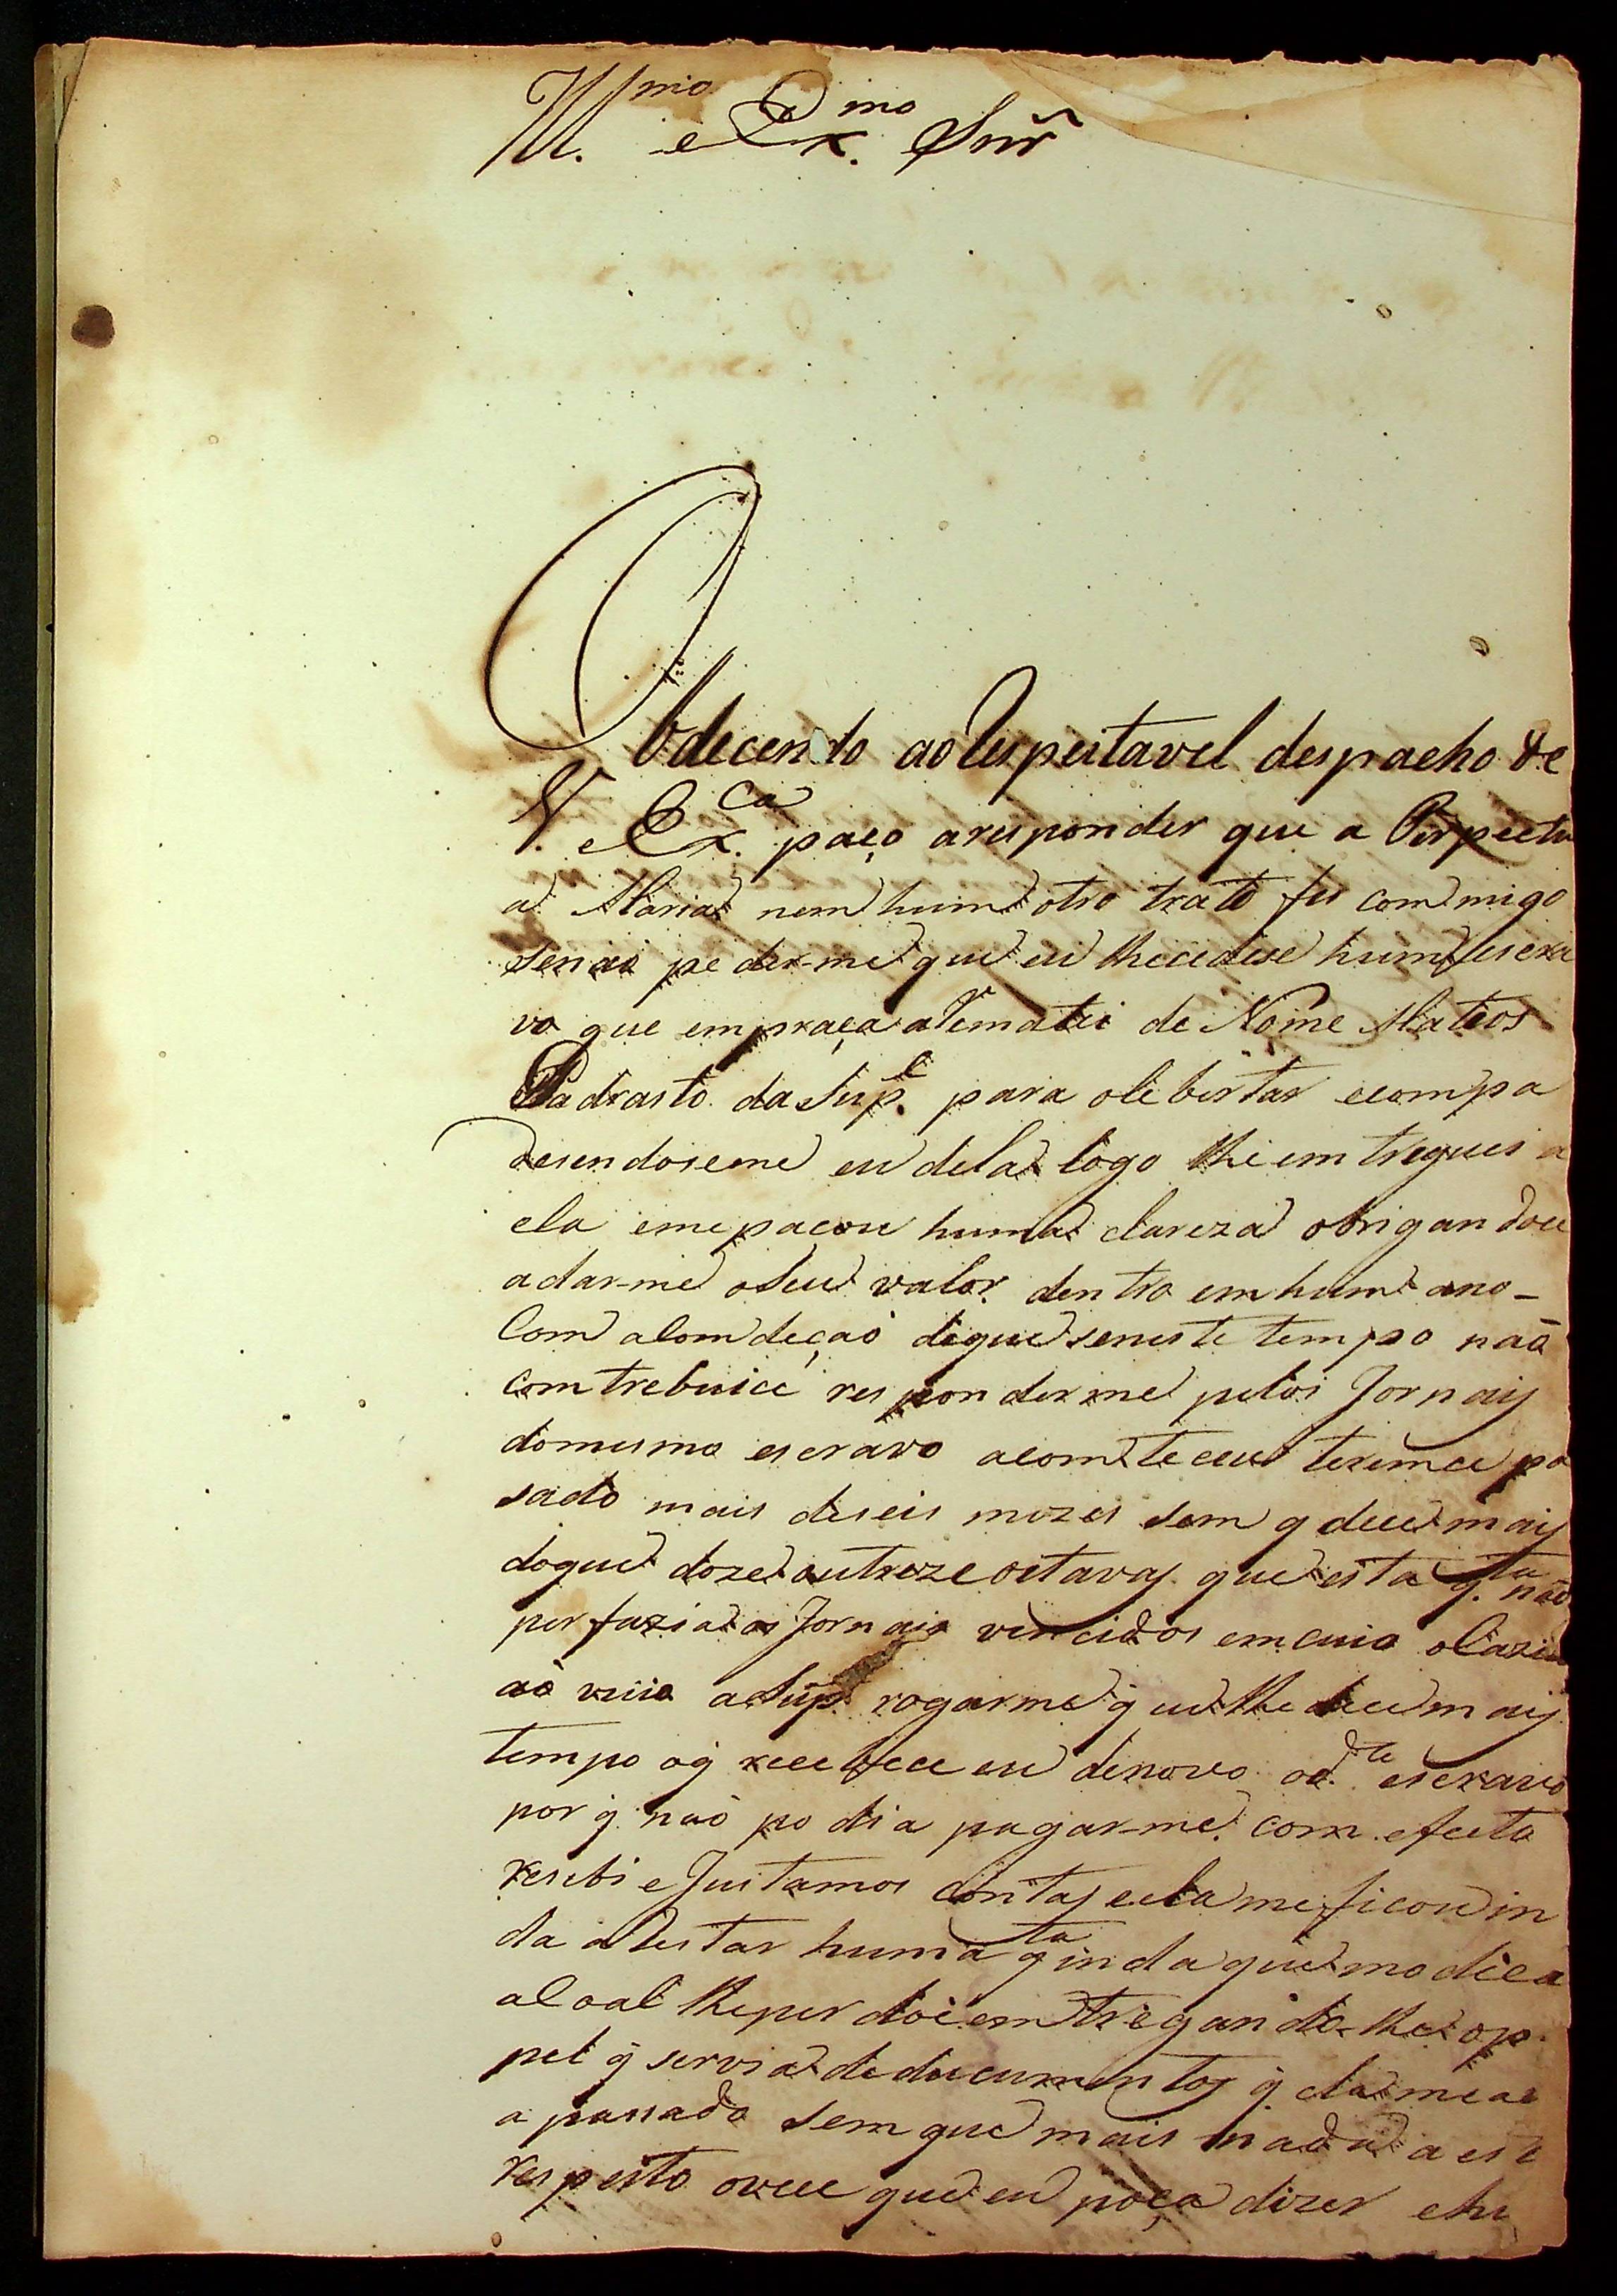 Ill.mo e Ex.mo Snr̃
Obdecendo ao Respeitavel despacho de
V. Ex.ca paço aresponder que a Perpectu
a Maria nem hum otro trato fes com migo
senaõ pe dir-me que eu lhecedese hum escra
vo que empraça aRematei de Nome Mateos
Padrasto da Sup.e para olebirtar ecompa
desendoseme eu dela logo lhe emtreguei a
ela emepaçou huma clareza obrigandoce
adar-me oSeu valor dentro em hum ano -
Com alomdeçaõ deque seneste tempo naõ
comtrebuice responderme pelos Jornais
domesmo escravo acomteceu teremce pa
sado mais deseis mezes sem q dece mais
doque doze outreze oitavas que esta q.ta naõ
perfazia os Jornais vencidos emcuia ocazi
aõ veio aSup.e rogarme q̃ eu lhe dece mais
tempo oq̃ recebece eu denovo od.to escravo
por q̃ naõ podia pagar-me com efeito
resebi e Justamos Contas eela meficou in
da aRestar huma q.ta inda que modica
aloal lheperdoei emtregando-lhe opa
pel q̃ servia dedocumentos q̃ ela me avi
a passado sem que mais nada a este
respeito ovece que eu poça dizer